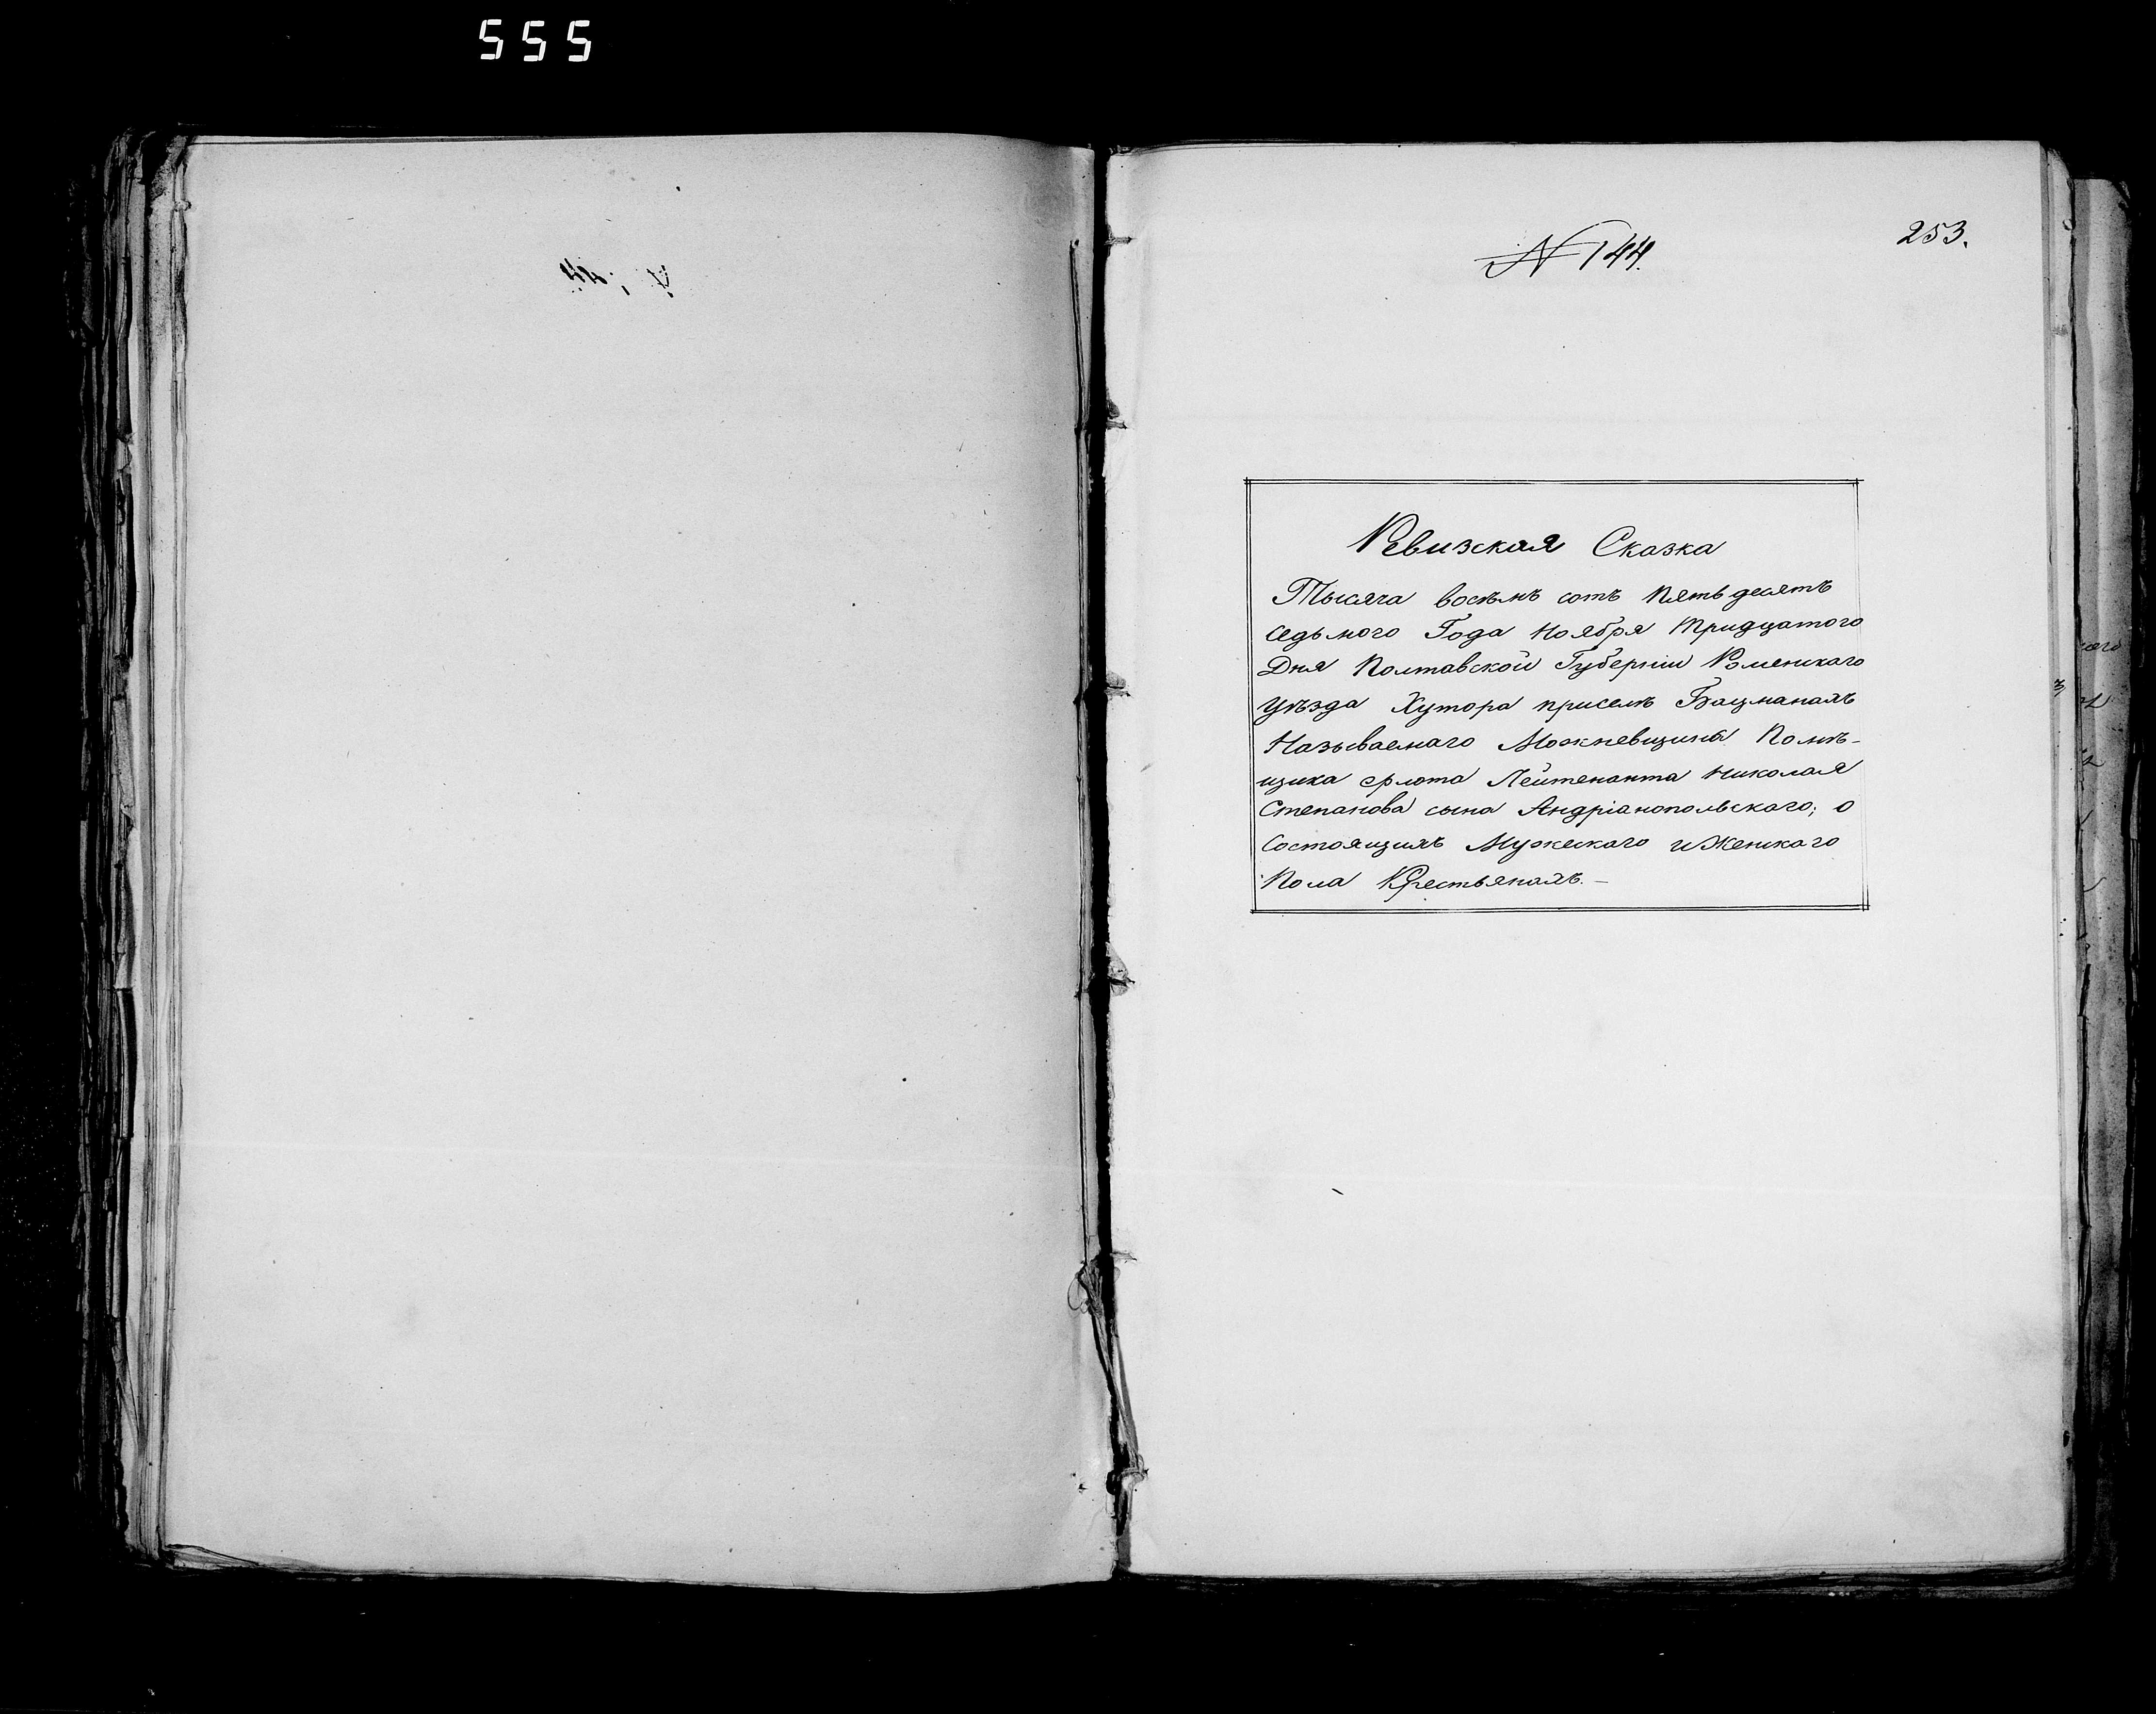 555
253.
N 144.
Ревизская Сказка
Тысяча восѣмъ сотъ Пятьдесятъ
седьмого Года Ноября Тридцатого
Дня Полтавской Губерніи Роменскаго
уѣзда Хутора приселѣ Бацманахъ
Называемаго Помѣ-
щика флота Лейтенанта Николая
Степанова сына Андріанопольскаго; о
Состоящихъ Мужескаго и Женскаго
Пола Крестьянахъ.—